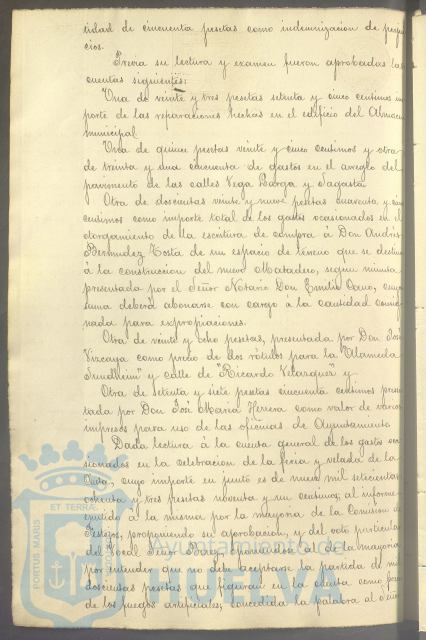 tidad de cincuenta pesetas como indemnización de perjui
cios.
Previa su lectura y examen fueron aprobadas las
cuentas siguientes:
Una de veinte y tres pesetas setenta y cinco centimos im
porte de las reparaciones hechas en el edificio del Almacen
municipal.
Una de quince pesetas veinte y cinco centimos y otra
de treinta y una cincuenta de gastos en el arreglo del
pavimento de las calles Vega Barga y Sagasta.
Otra de doscientas veinte y nueve pesetas cuarenta y
centimos como importe total de los gastos ocasionados en el
otorgamiento de la escritura de compra á Don Andres
Bermudez Tosta de un espacio de terreno que se destina
á la construccion del nuevo Matadero, segun minuta
presentada por el Señor Notario Don Emilio Cano, cuya
suma deberá abonarse con cargo á la cantidad consig
nada para expropiaciones.
Otra de veinte y ocho pesetas, presentada por Don José
Vizcaya como precio de dos rótulos para la "Alameda
Sundheim" y calle de "Ricardo Velazquez" y
Otra de setenta y siete pesetas cincuenta centimos presen
tada por Don José Maria Herrera como valor de varios
impresos para uso de las oficinas de Ayuntamiento
Dada lectura á la cuenta general de los gastos oca
sionados en la celebracion de la feria y velada de la
Cinta, cuyo importe en junto es de nueve mil setecientas
ochenta y tres pesetas noventa y un centimos; al informe
emitido á la misma por la mayoria de la Comision de
Festejos, proponiendo su aprobacion, y del voto particular
del Vocal Señor oponiendose al de la mayoria
por entender que no debe aceptarse la partida de mil
doscientas pesetas que figuran en la cuenta como precio
de los fuegos artificiales; concedida la palabra al Señor
PORTUS MARIS ET TERRAE
Ayuntamiento de
HUELVA